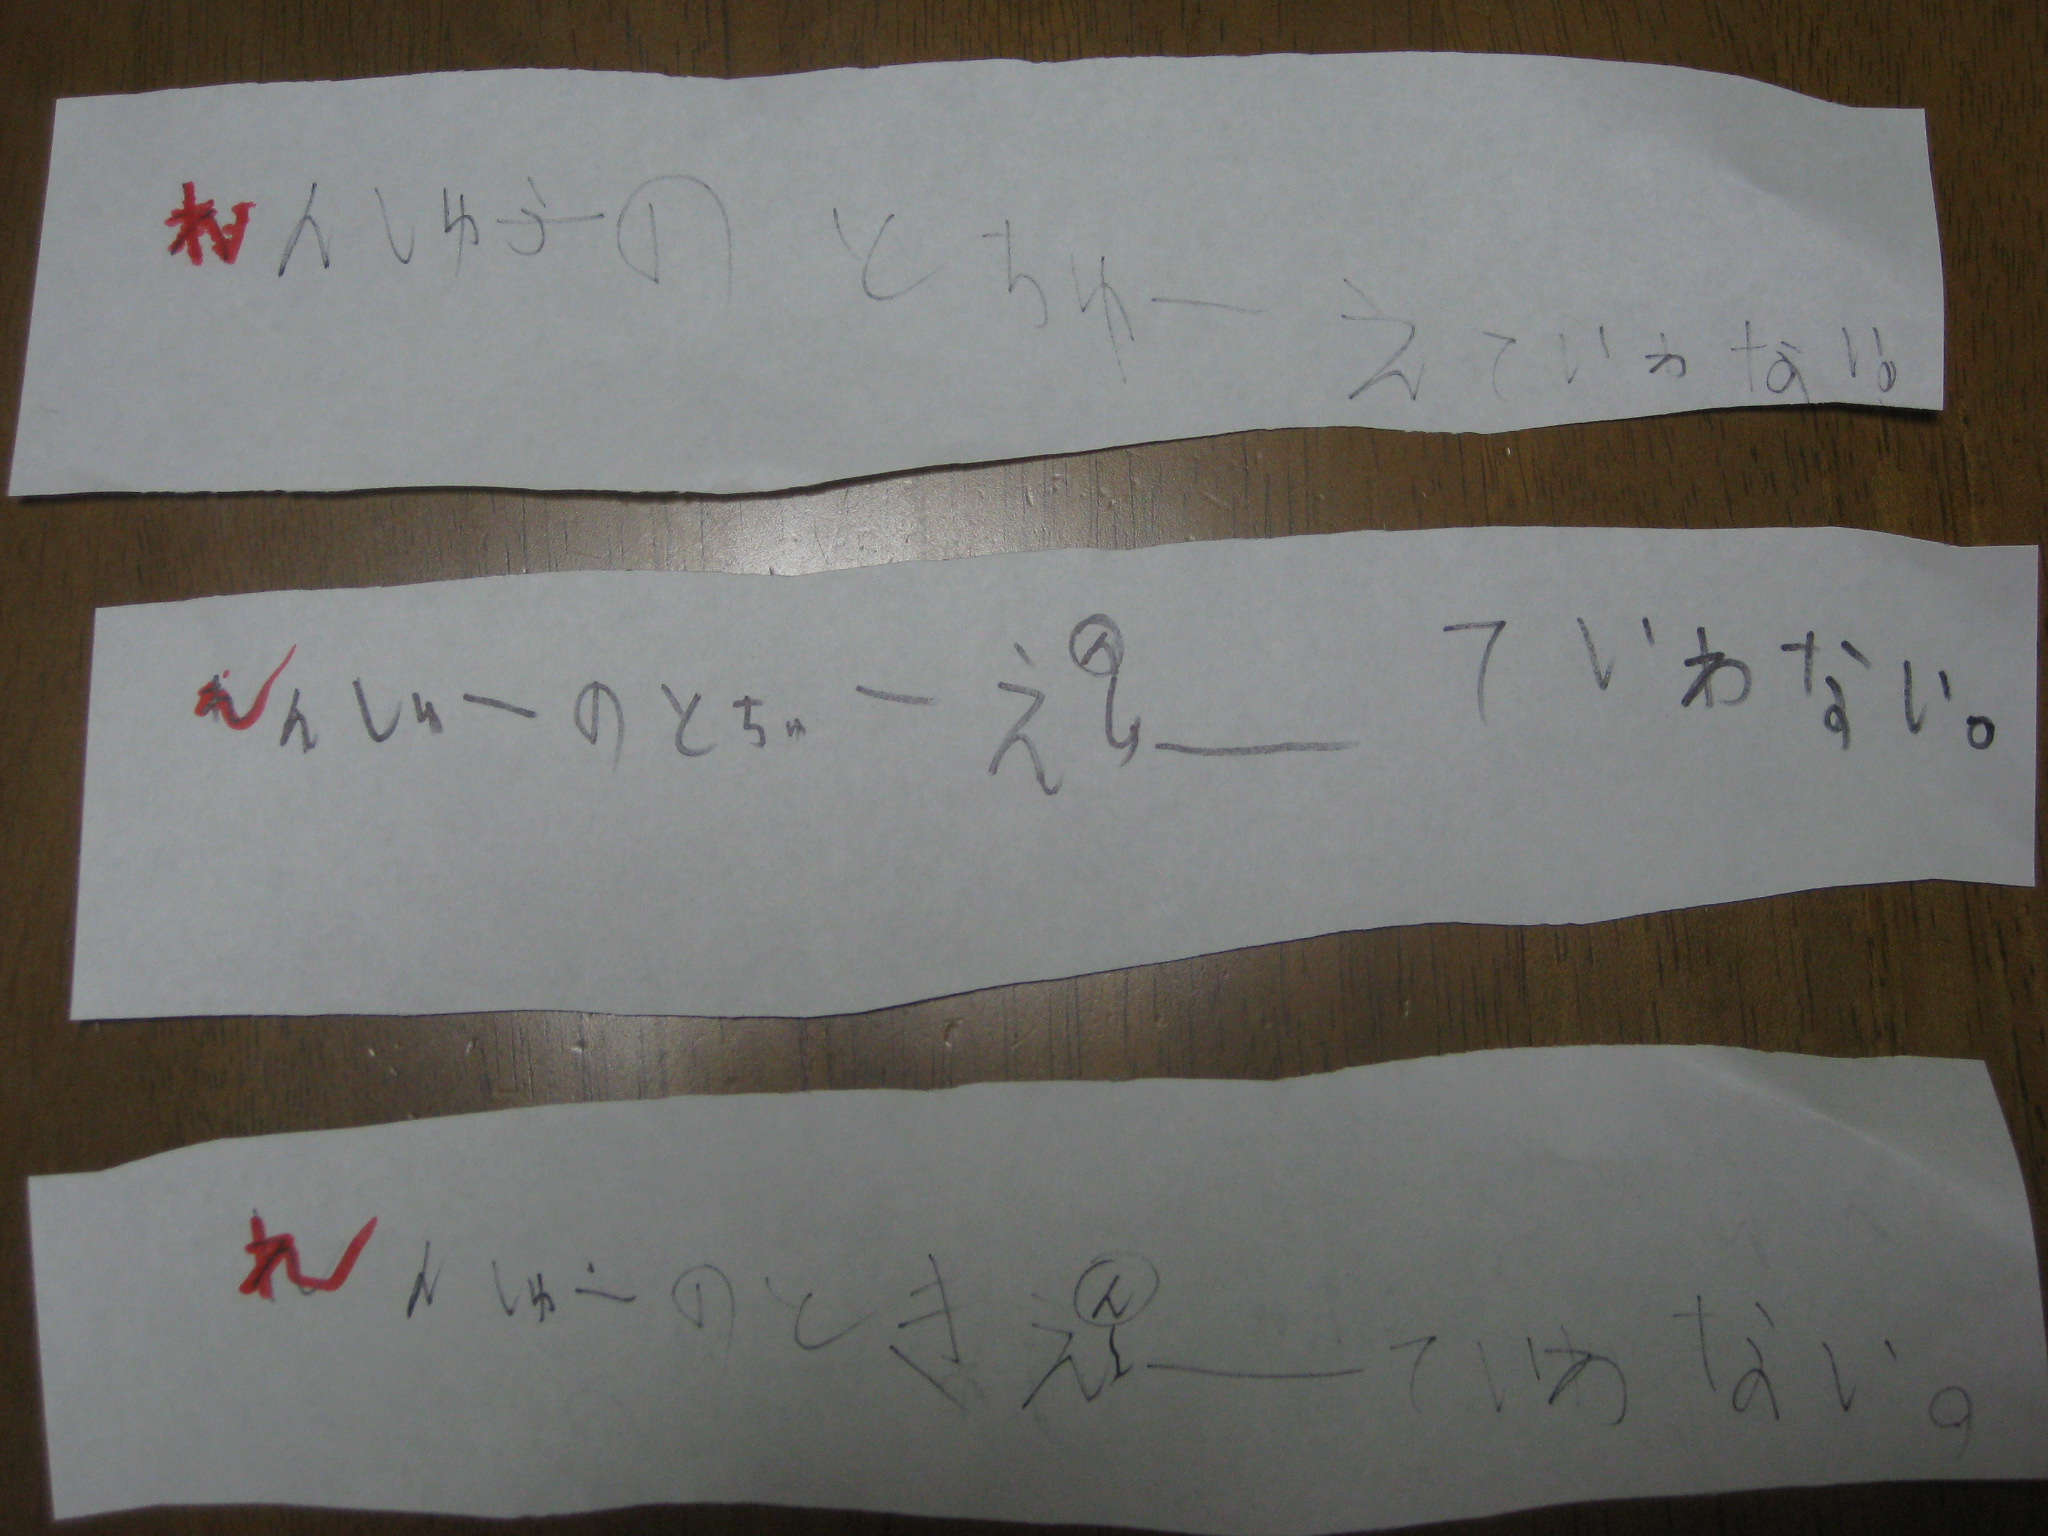 れんしゅーの とちゅー えていわない。
れんしゅーのとちゅーえんーていわない。
れんしゅーのときえんーていわない。